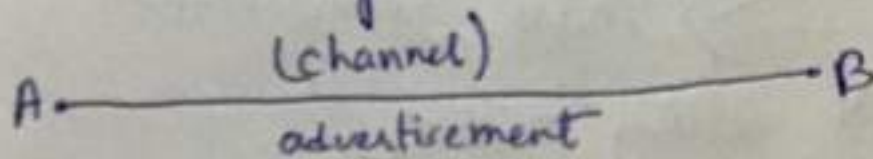 (channel)
A B
advertisement